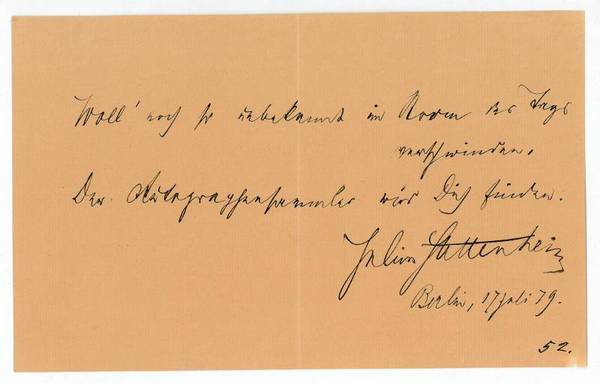 Woll' noch so unbekannt im Strom des Tags
verschwinden,
Der Autographensammler wird Dich finden.
Julius Stettenheim
Berlin, 17 Juli 79.
52.